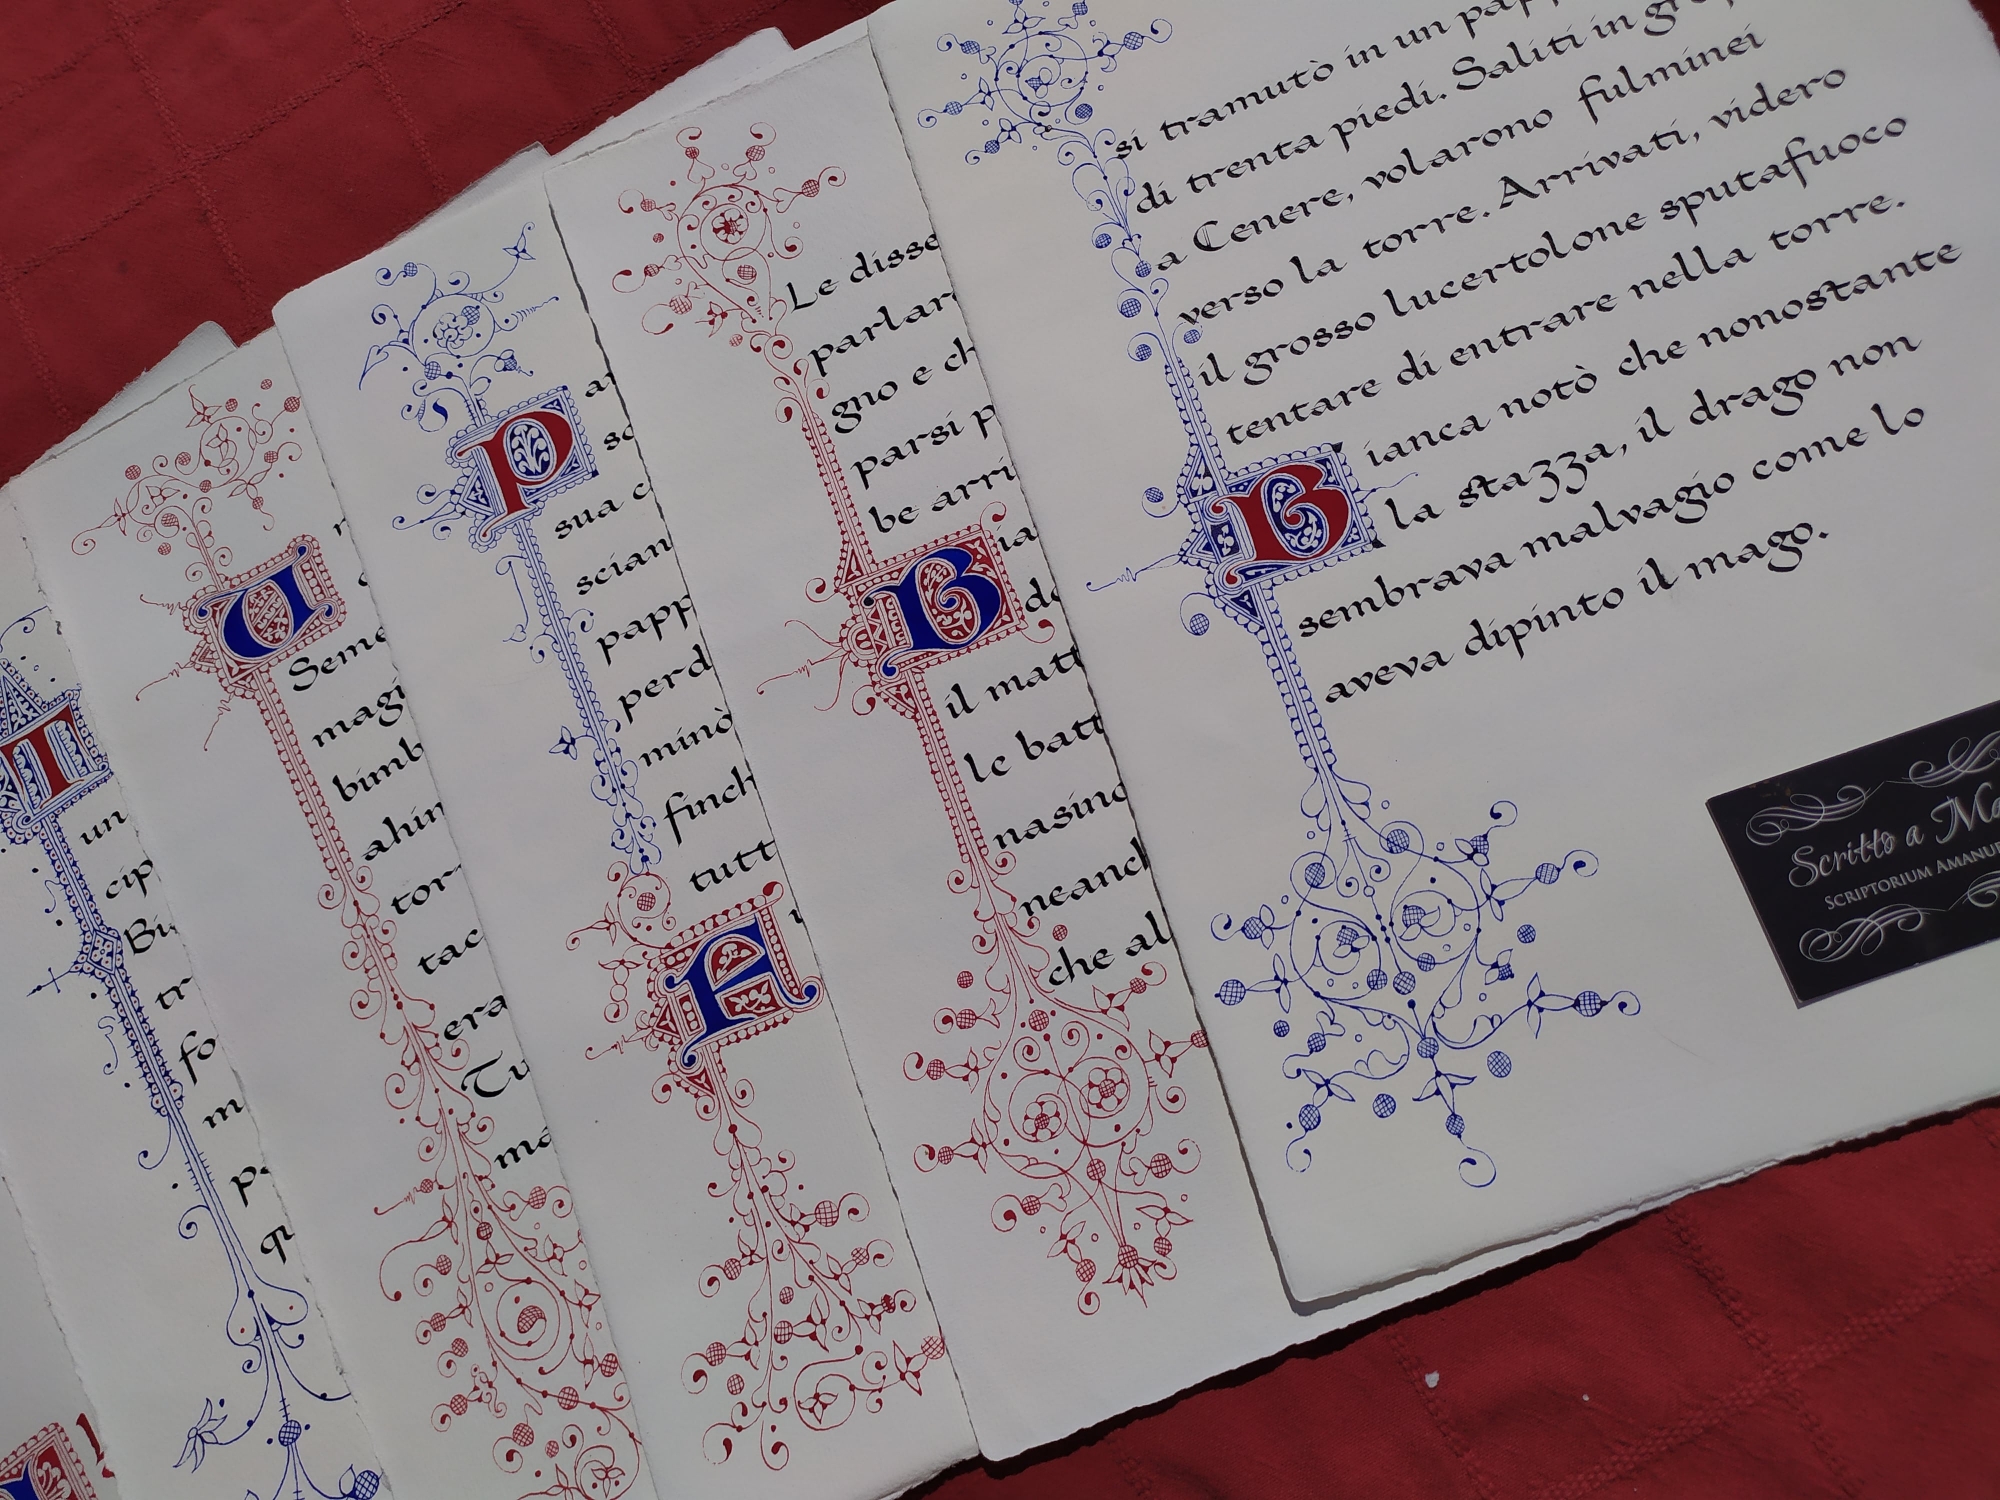 si tramutò in un
di trenta piedi. Saliti in
a Cenere, volarono fulminei
verso la torre. Arrivati, videro
il grosso lucertolone sputafuoco
tentare di entrare nella torre.
Bianca notò che nonostante
la stazza, il drago non
sembrava malvagio come lo
aveva dipinto il mago.
Scritto a
Scriptorium
Le disse
parlar
gno e ch
parsi p
be arri
Bia
il matt
le batt
nasino
neanch
che al
P
sua c
scian
papp
perd
minò
finch
tutt
A
U
Seme
magi
bimb
tor
tac
era
Tu
ma
I
un
cip
Bi
tr
fo
m